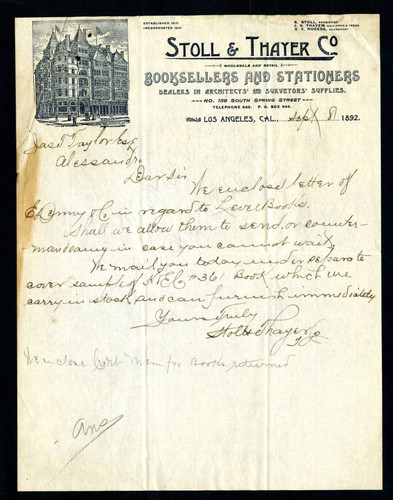 ESTABLISHED 1871
INCORPORATED 1891
S. STOLL, PRESIDENT
J. S. THAYER, VICE-PRES & TREAS
G. A. ROGERS, SECRETARY
STOLL & THAYER CO
WHOLESALE AND RETAIL
BOOKSELLERS AND STATIONERS
DEALERS IN ARCHITECTS' AND SURVEYORS' SUPPLIES.
NO. 139 SOUTH SPRING STREET
TELEPHONE P. O. BOX
LOS ANGELES, CAL., Sept 8 1892.
Jas T Taylor Esq
Alessandro
Dear Sir
We enclose letter of
in regard to Level Books.
Shall we allow them to send, or counter-
mand in case you cannot wait.
We mail you today under separate
cover sample of K & E C #361 Book which we
carry in stock and can furnish immediately
Yours Truly
Stoll & Thayer Co
We enclose Mem for Books returned
Ans